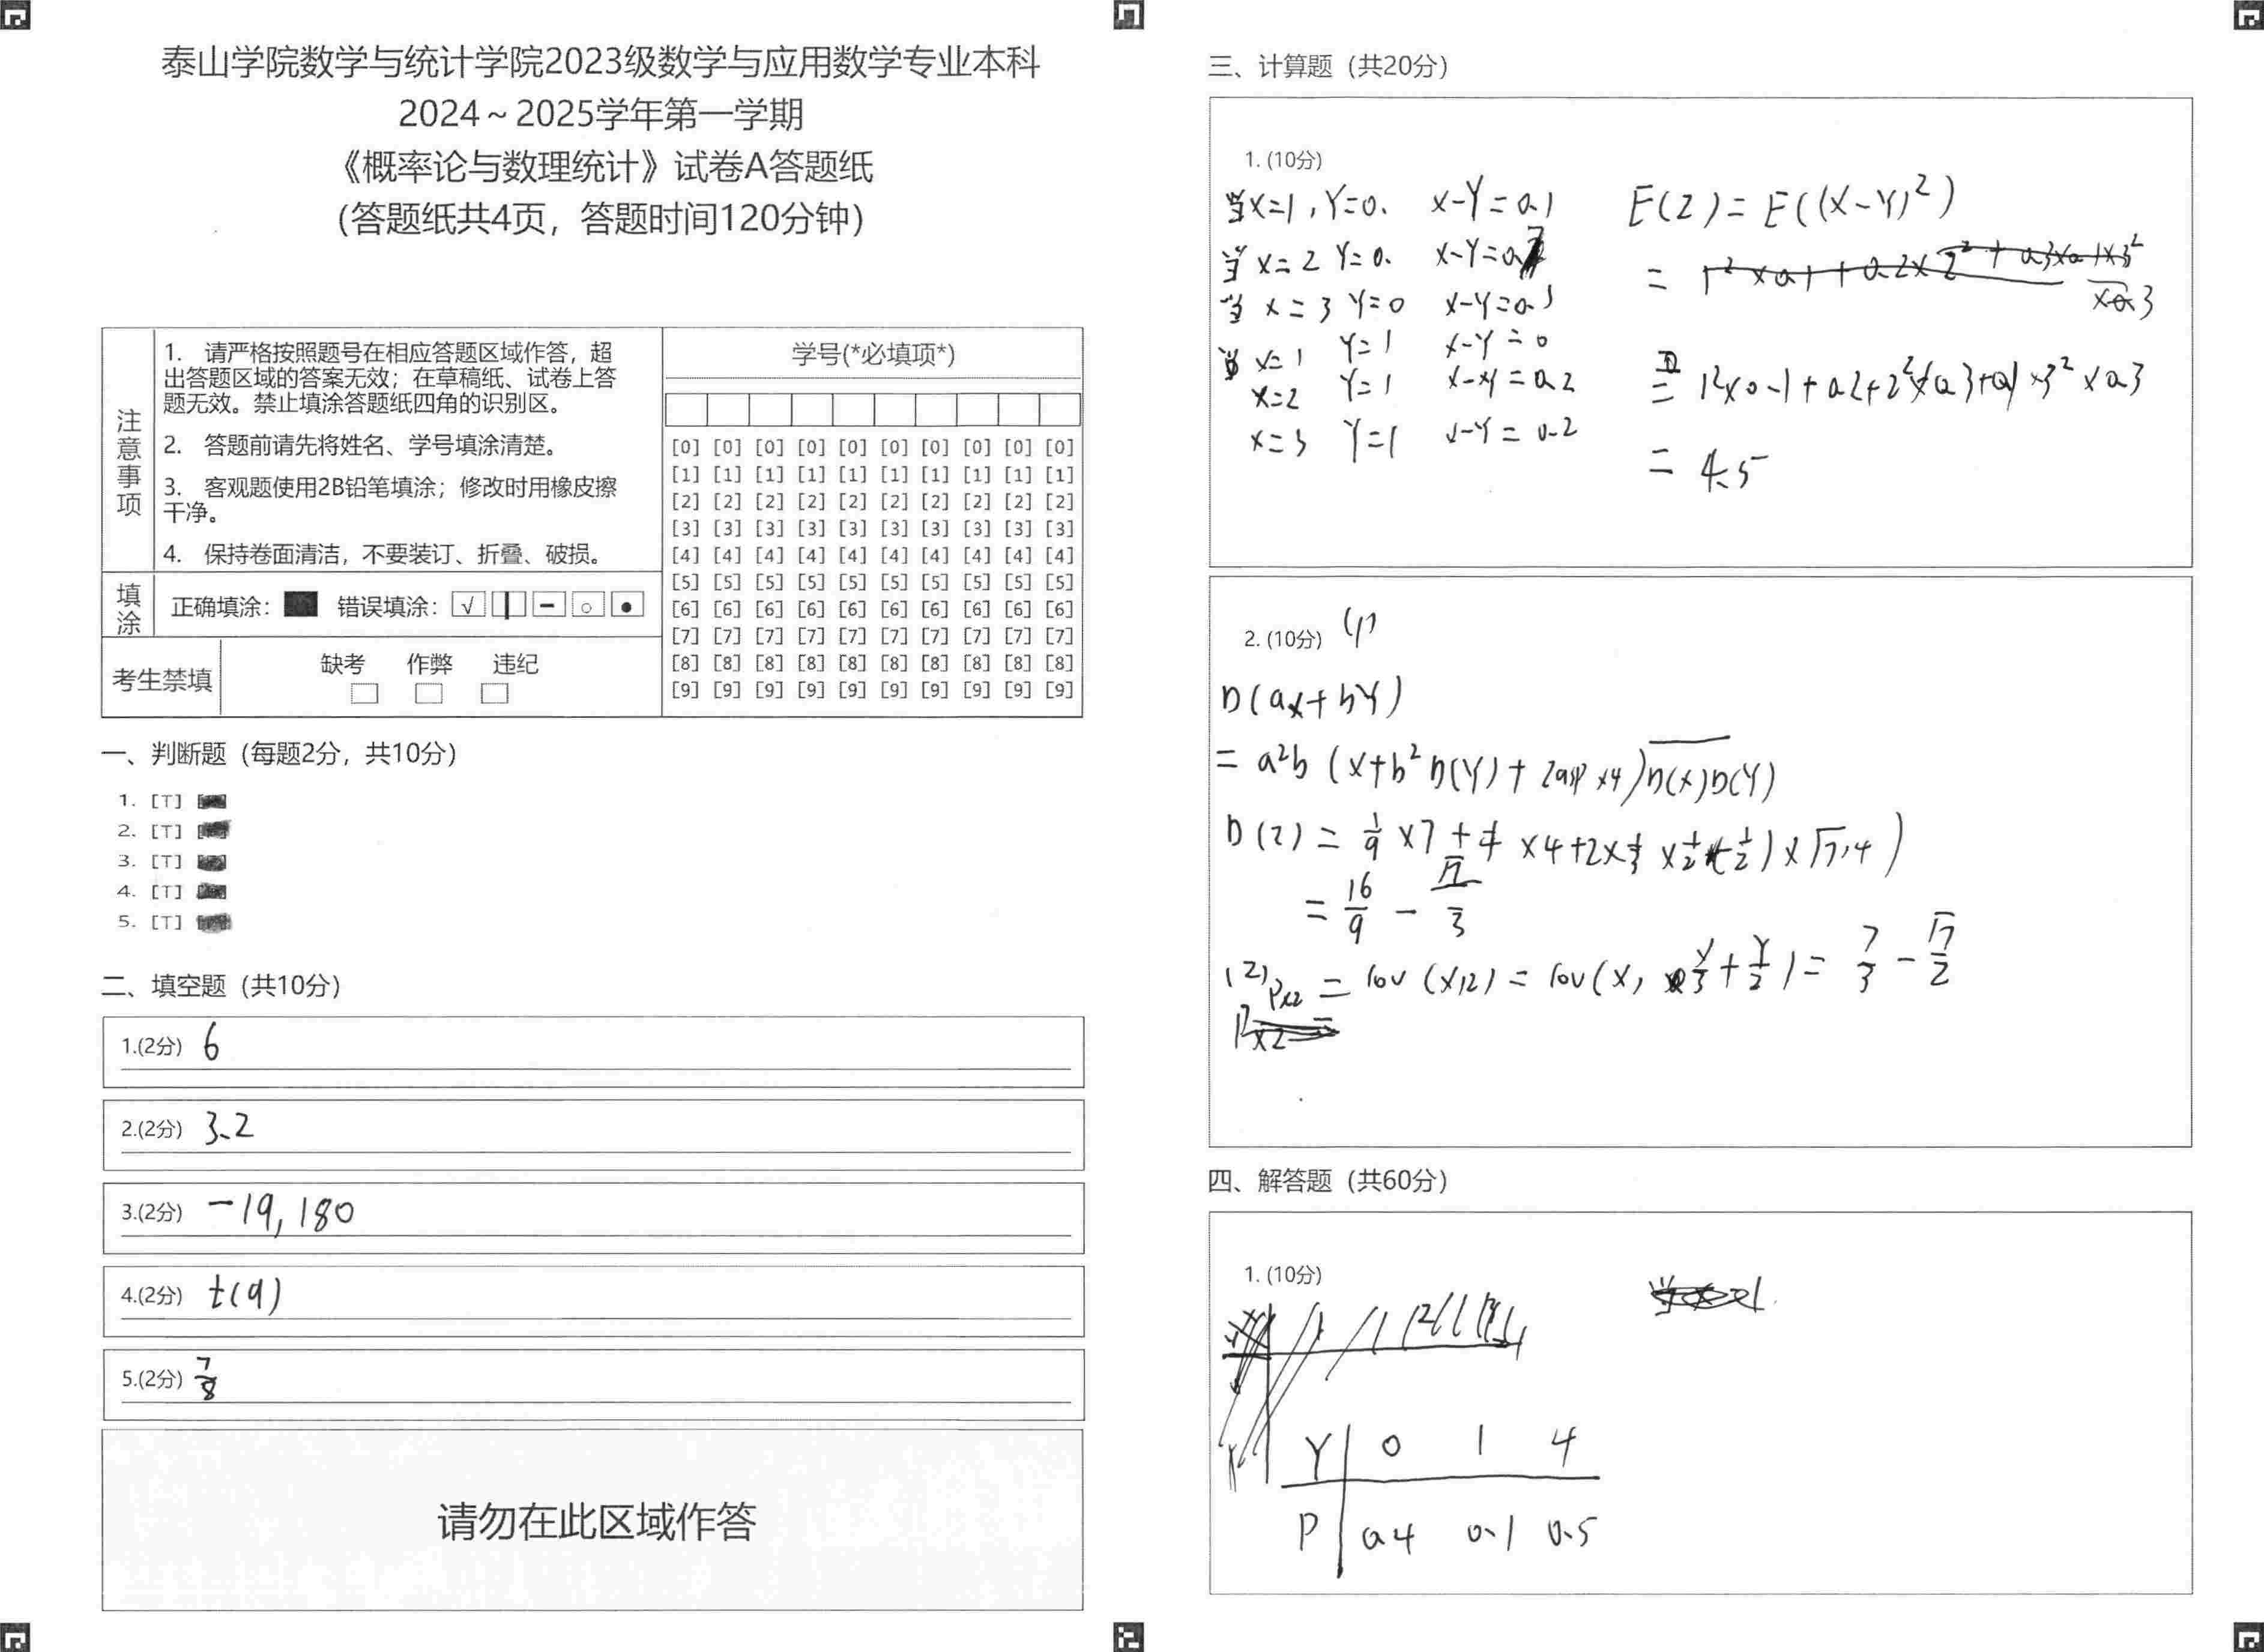 泰山学院数学与统计学院2023级数学与应用数学专业本科
2024～2025学年第一学期
《概率论与数理统计》试卷A答题纸
(答题纸共4页，答题时间120分钟)
注意事项
1. 请严格按照题号在相应答题区域作答，超
出答题区域的答案无效；在草稿纸、试卷上答
题无效。禁止填涂答题纸四角的识别区。
2. 答题前请先将姓名、学号填涂清楚。
3. 客观题使用2B铅笔填涂；修改时用橡皮擦
干净。
4. 保持卷面清洁，不要装订、折叠、破损。
填涂
正确填涂： 错误填涂：
考生禁填
缺考 作弊 违纪
学号(*必填项*)
[0] [0] [0] [0] [0] [0] [0] [0] [0] [0]
[1] [1] [1] [1] [1] [1] [1] [1] [1] [1]
[2] [2] [2] [2] [2] [2] [2] [2] [2] [2]
[3] [3] [3] [3] [3] [3] [3] [3] [3] [3]
[4] [4] [4] [4] [4] [4] [4] [4] [4] [4]
[5] [5] [5] [5] [5] [5] [5] [5] [5] [5]
[6] [6] [6] [6] [6] [6] [6] [6] [6] [6]
[7] [7] [7] [7] [7] [7] [7] [7] [7] [7]
[8] [8] [8] [8] [8] [8] [8] [8] [8] [8]
[9] [9] [9] [9] [9] [9] [9] [9] [9] [9]
一、判断题（每题2分，共10分）
1. [T]
2. [T]
3. [T]
4. [T]
5. [T]
二、填空题（共10分）
1.(2分) 6
2.(2分) 3.2
3.(2分) -19, 180
4.(2分) t(9)
5.(2分) 7/8
请勿在此区域作答
三、计算题（共20分）
1. (10分)
当X=1, Y=0. X-Y=0.1
当X=2 Y=0. X-Y=0.
当X=3 Y=0 X-Y=0.3
X=1 Y=1 X-Y=0
X=2 Y=1 X-Y=0.2
X=3 Y=1 X-Y=0.2
E(Z)=E((X-Y)²)
= 1²×0.1+0.2+2²×(0.3+0.1)×3²×0.3
= 4.5
2. (10分) (1)
D(aX+bY)
D(Z)= 1/9 ×7+
= 16/9 - √7/3
(2) = Cov(X,Z)=Cov(X, X/3+Y/2)= 7/3 - √7/2
四、解答题（共60分）
1. (10分)
Y 0 1 4
P 0.4 0.1 0.5